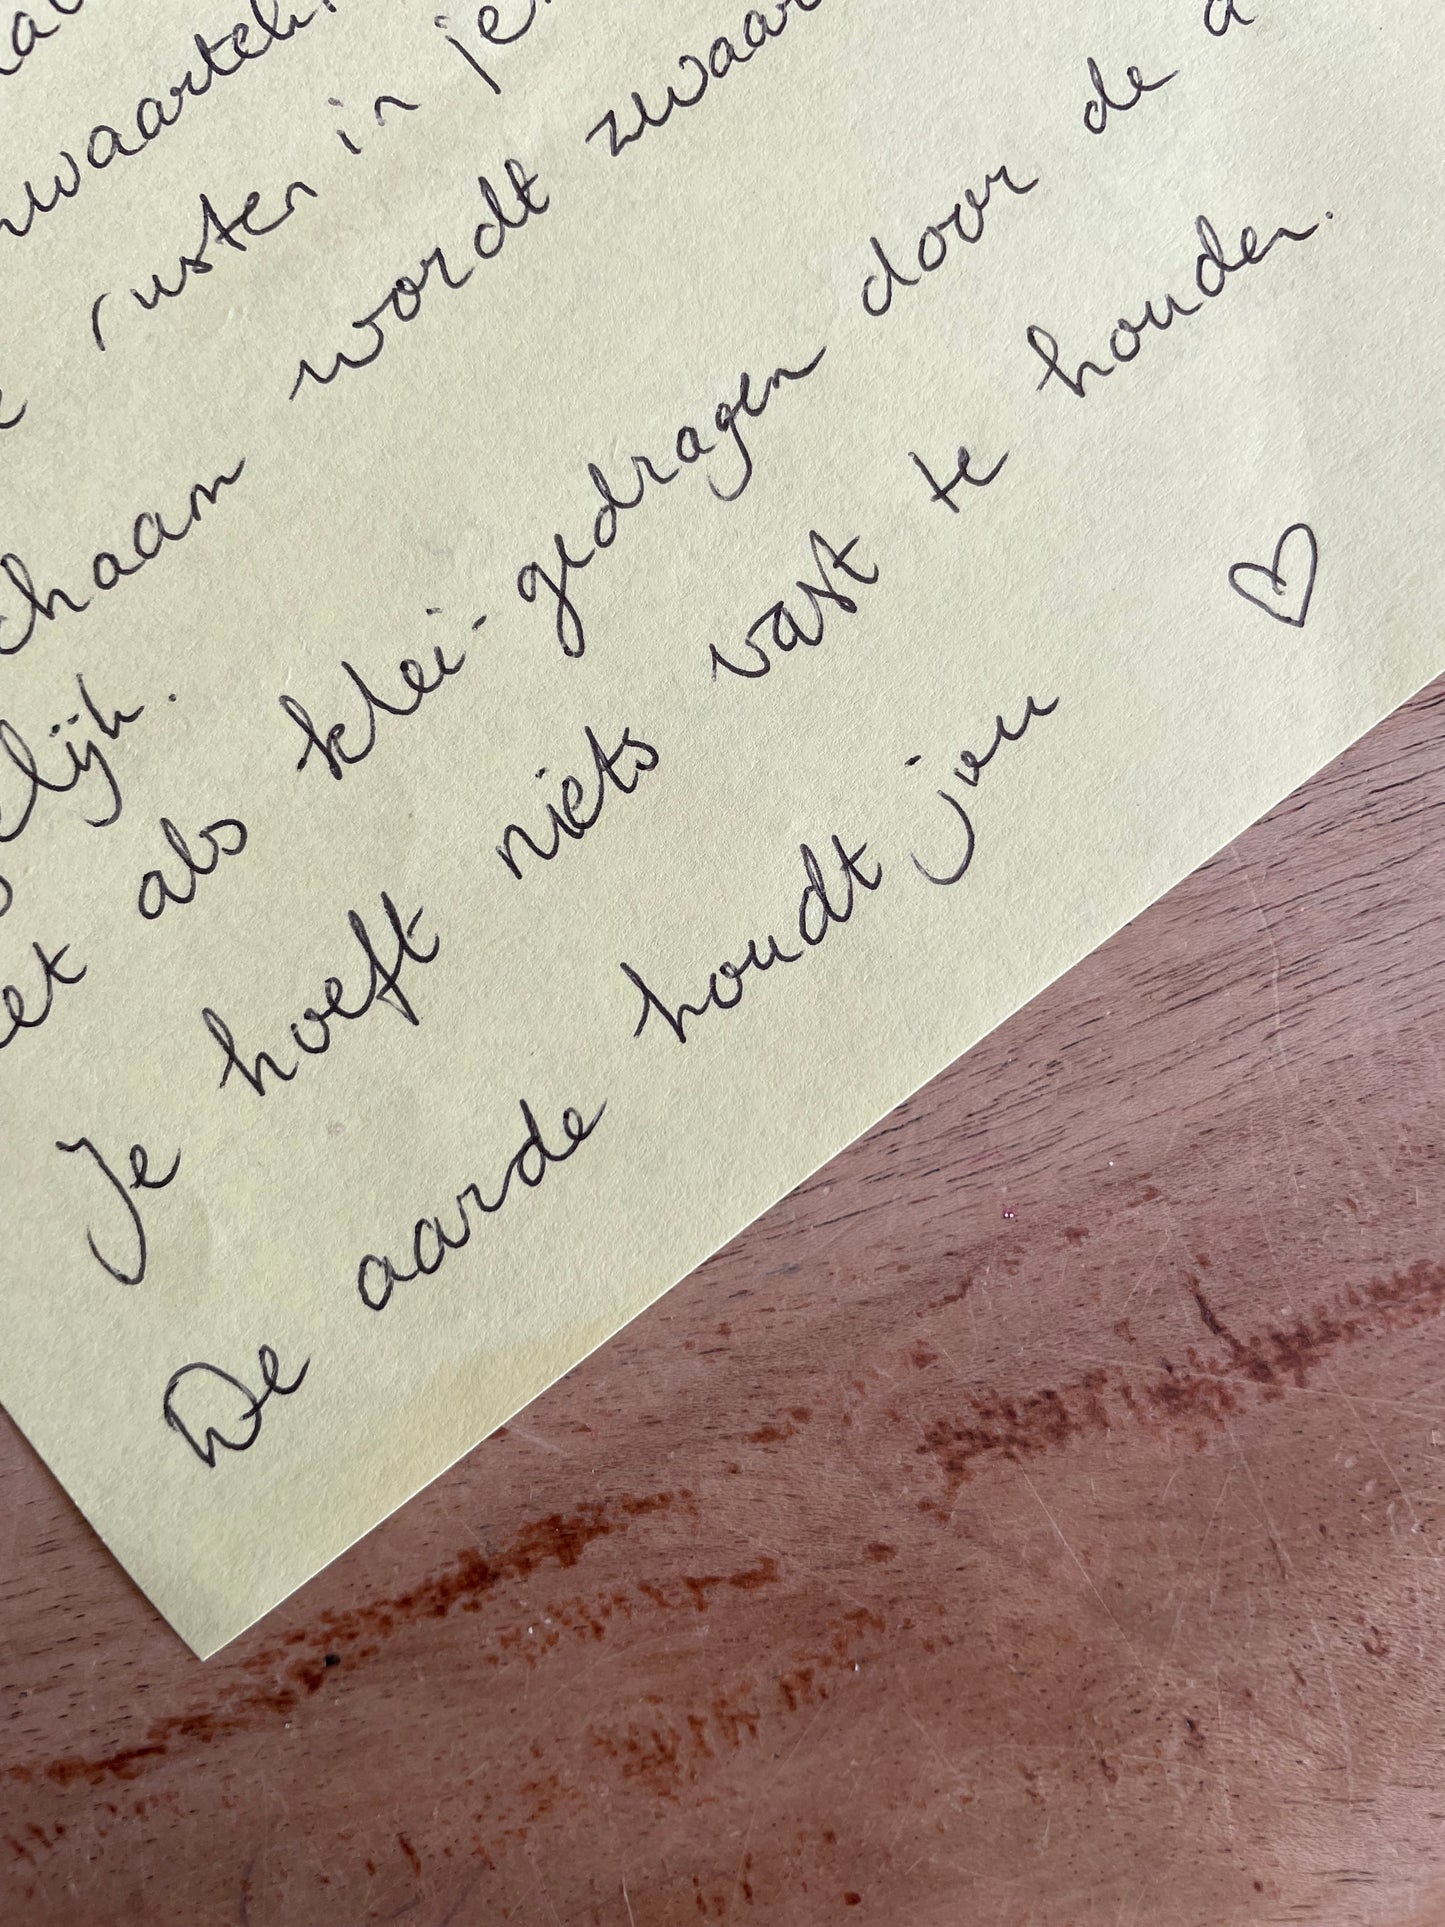 rusten in je
chaam wordt zwaar
elijk.
et als klei-gedragen door de a
Je hoeft niets vast te houden.
De aarde houdt jou ♡